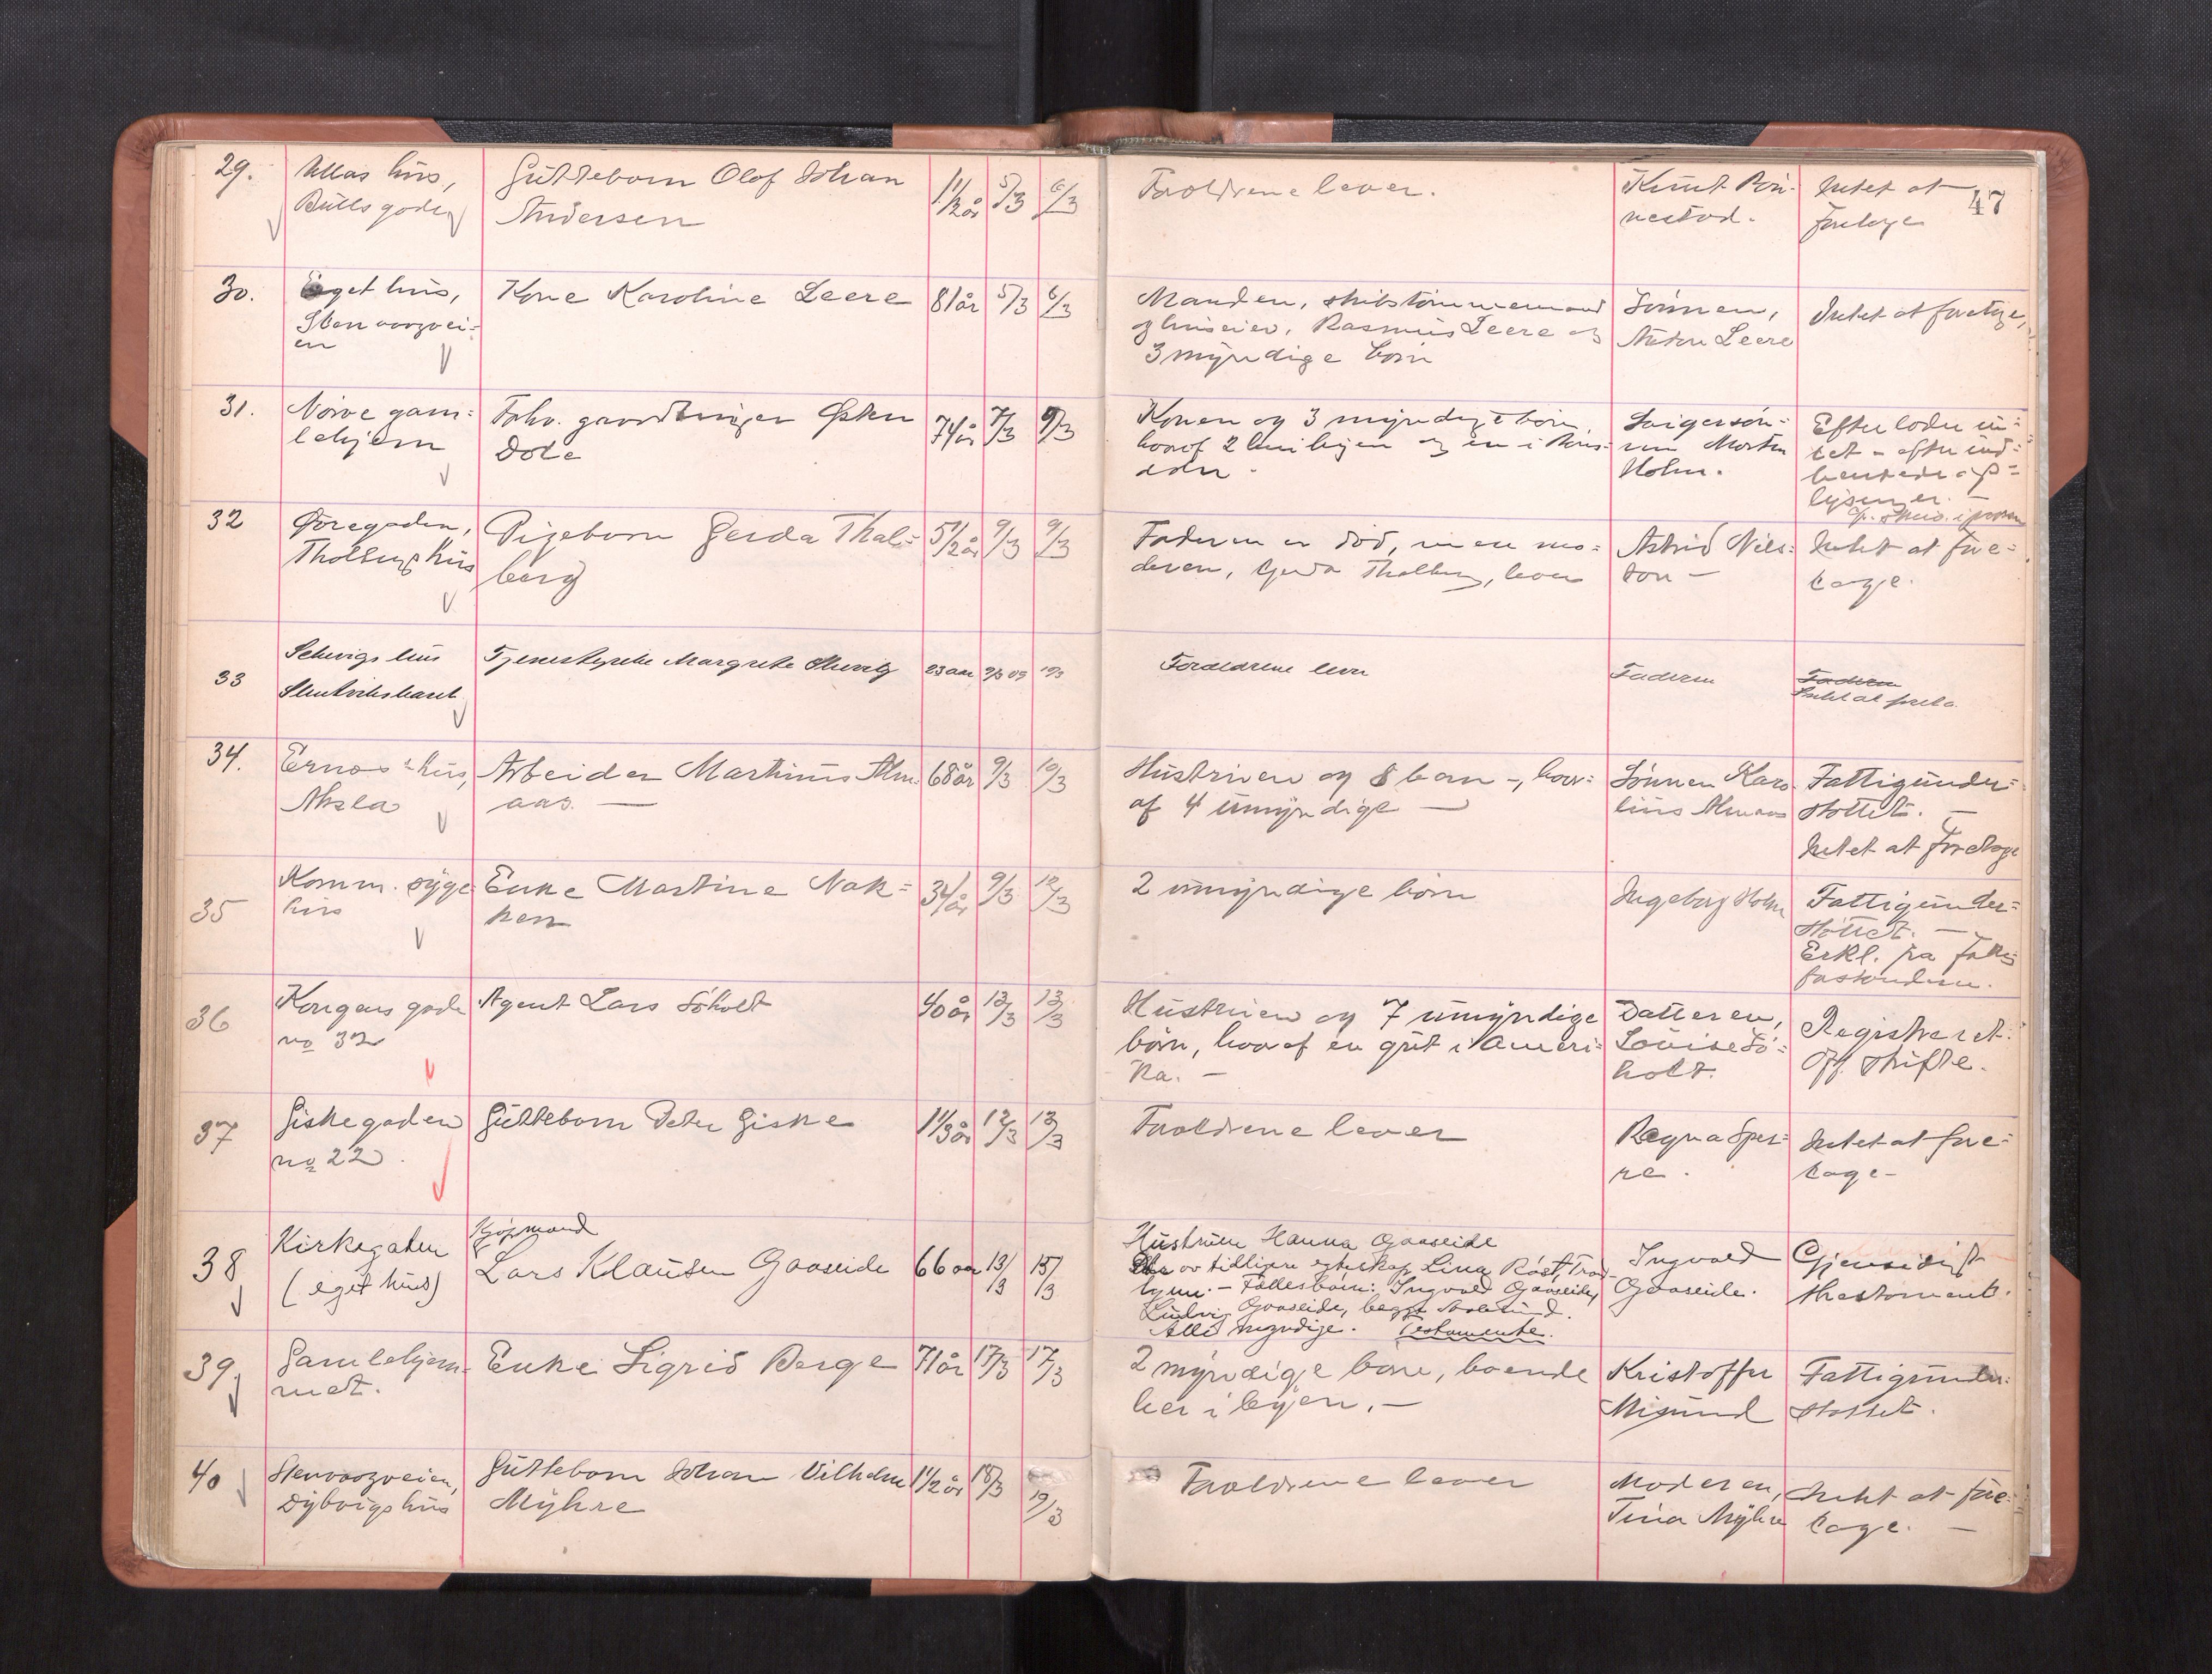 47
29.
Ullas hus,
Bullsgaden
Gutteborn Olof Johan
Andersen
1 1/2 år
5/3
6/3
Foreldrene lever.
Knut
nestad.
Intet at
foretage
30.
Eget hus,
Stenvaagvei-
en
Kone Karoline Leere
81 år
5/3
6/3
Manden, skibstømmermand
og huseier, Rasmus Leere og
3 myndige børn
Sønnen,
Anton Leere
Intet at foretage,
31.
Nørve gam-
lehjem
Forhv. gaardbruger Østen
Dole
74 år
7/3
9/3
Konen og 3 myndige børn,
hvoraf 2 her i byen og en i Kris-
Svigersøn-
nen Morten
Holm.
Efterlader in-
tet - efter ind-
hentede op-
lysninger. -
32
Øvregaden,
Thalbergs hus
Pigeborn Gerda Thal-
berg
5 1/2 år
9/3
9/3
Faderen er død, men mo-
deren, Gerda Thalberg, lever
Astrid Niel-
sen -
Intet at fore-
tage.
33
hus
Tjenestepike Margrete
23 aar
9/3 09
10/3
Foreldrene lever
Faderen
Faderen
Intet at foreta.
34.
Ernos hus,
Aksla
Arbeider Martinus Alm-
aas. -
68 år
9/3
10/3
Hustruen og 8 børn -, hvor-
af 4 umyndige -
Sønnen Karo-
linus Almaas
Fattigunder-
støttet. -
Intet at foretage
35
Komm. syge-
hus
Enke Martine Nak-
ken
34 år
9/3
12/3
2 umyndige børn
Ingeborg Holm
Fattigunder-
støttet. -
Erkl. fra fattig-
forstanderen.
36
Kongens gade
no 32
Agent Lars Søholt
40 år
13/3
13/3
Hustruen og 7 umyndige
børn, hvoraf en gut i Ameri-
ka. -
Datteren,
Louise Sø-
holt.
Registreret.
Off. skifte.
37
Giskegaden
no 22.
Gutteborn Peter Giske
1 1/3 år
12/3
13/3
Foreldrene lever
Ragna Sper-
re.
Intet at fore-
tage -
38
Kirkegaten
(eget hus)
Kjøpmand
Lars Klausen Gaaseide
66 aar
13/3
15/3
Hustruen Hanna Gaaseide
av tidligere egteskap Lina Røst,
- Fællesbørn: Ingvald Gaaseide,
Ludvig Gaaseide, begge Aalesund.
Alle myndige. Testamente.
Ingvald
Gaaseide.
Gjensidigt
thestament.
39.
Gamlehjem-
met.
Enke Sigrid Berge
71 år
17/3
17/3
2 myndige børn, boende
her i byen. -
Kristoffer
Misund
Fattigunder-
støttet.
40
Stenvaagveien,
Dybvigs hus
Gutteborn Johan Vilhelm
Myhre
1 1/2 år
18/3
19/3
Foreldrene lever
Moderen,
Tina Myhre
Intet at fore-
tage. -